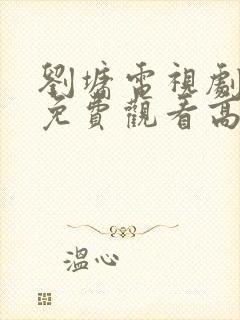 劉墉電視劇
免費觀看高
溫心